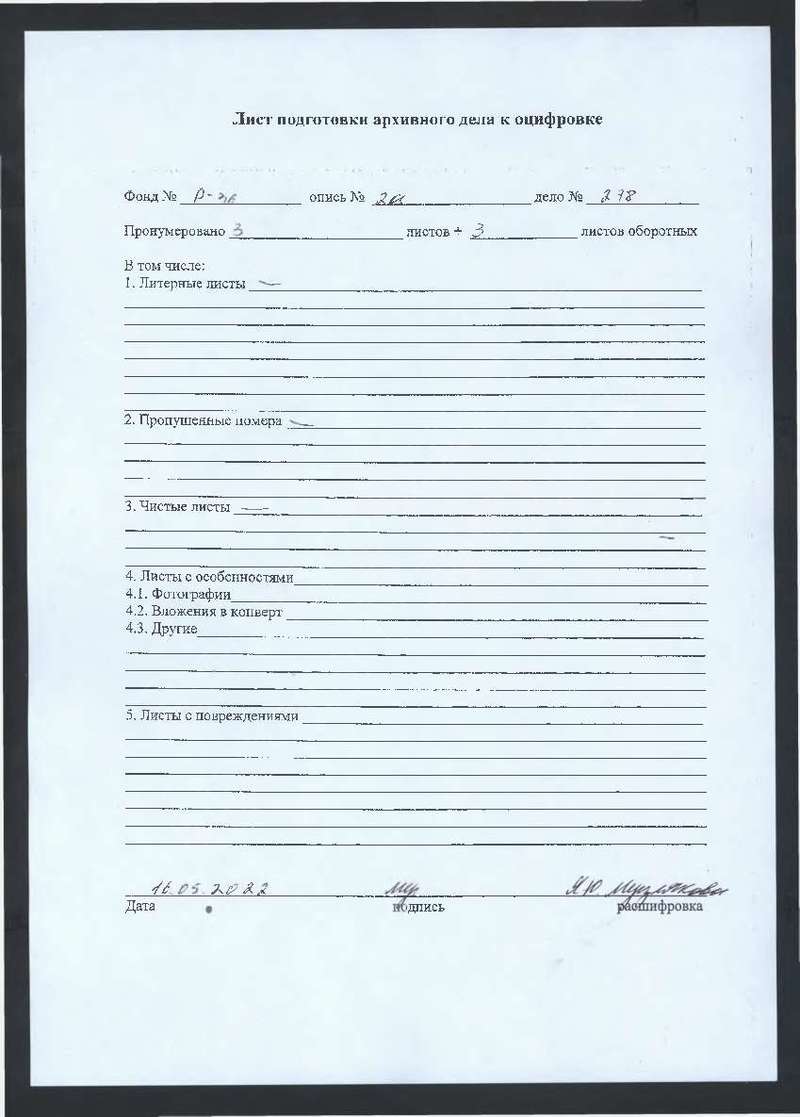 Лист подготовки архивного дела к оцифровке
Фонд № опись № дело № 278
Пронумеровано 3 листов + 3 листов оборотных
В том числе:
1. Литерные листы —
2. Пропущенные номера —
3. Чистые листы —
4. Листы с особенностями
4.1. Фотографии
4.2. Вложения в конверт
4.3. Другие
5. Листы с повреждениями
16.05.2022
Дата подпись расшифровка